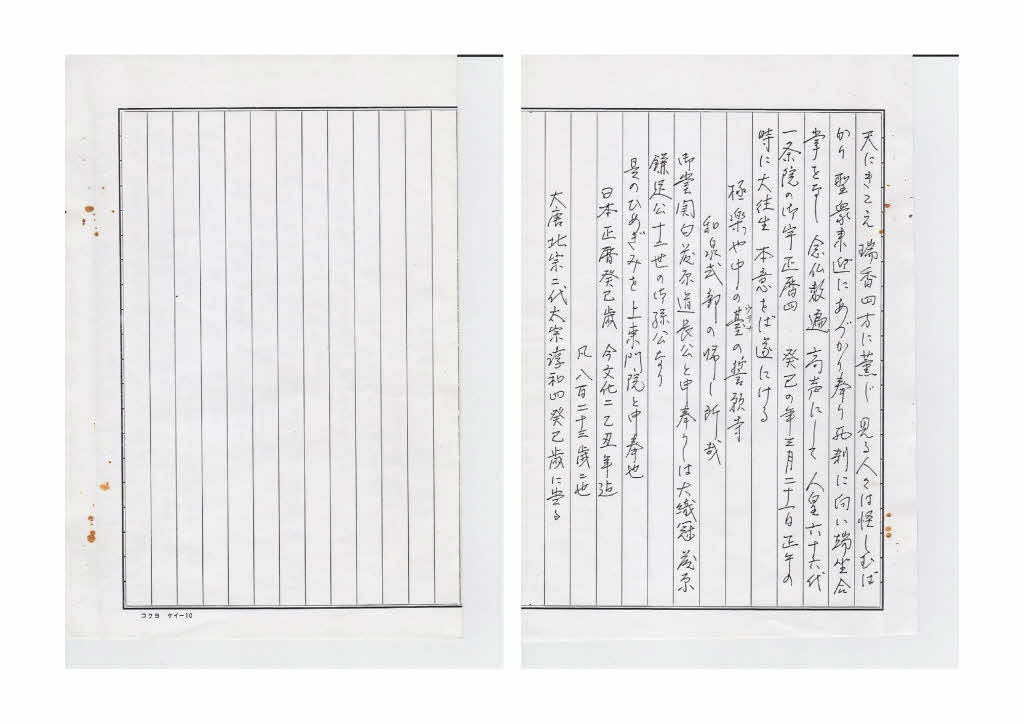 天にきこえ 瑞香四方に薫じ 見る人々は怪しむば
かり 聖衆来迎にあづかり奉り 西刹に向い 端坐合
掌をなし 念仏数遍 高声にして 人皇六十六代
一条院の御宇 正暦四 癸巳の年 三月二十一日 正午の
時に大往生 本意をば遂にける
極楽や中の臺の誓願寺
ウテナ
和泉式部の帰し所哉
御堂関白藤原道長公と申奉りしは大織冠藤原
鎌足公十一世の御孫公なり
是のひめぎみを上東門院と申奉也
日本正暦癸巳歳 今文化二乙丑年迄
凡八百二十三歳ニ也
大唐北宗二代太宗淳和四癸巳歳に当る
コクヨ ケイ-10